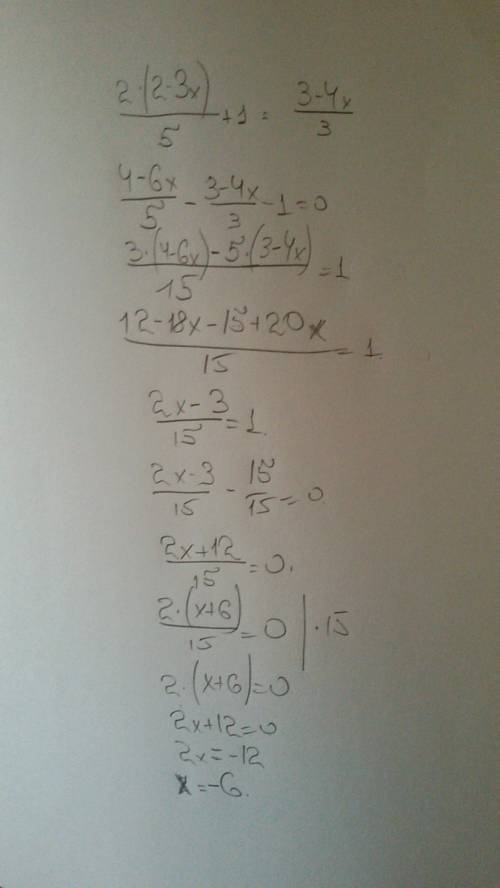 2·(2-3x)/5 + 1 = 3-4x/3
4-6x/5 - 3-4x/3 - 1 = 0
3·(4-6x)-5·(3-4x)/15 = 1
12-18x-15+20x/15 = 1.
2x-3/15 = 1.
2x-3/15 - 15/15 = 0
2x+12/15 = 0.
2·(x+6)/15 = 0 |·15
2·(x+6)=0
2x+12=0
2x=-12
x=-6.